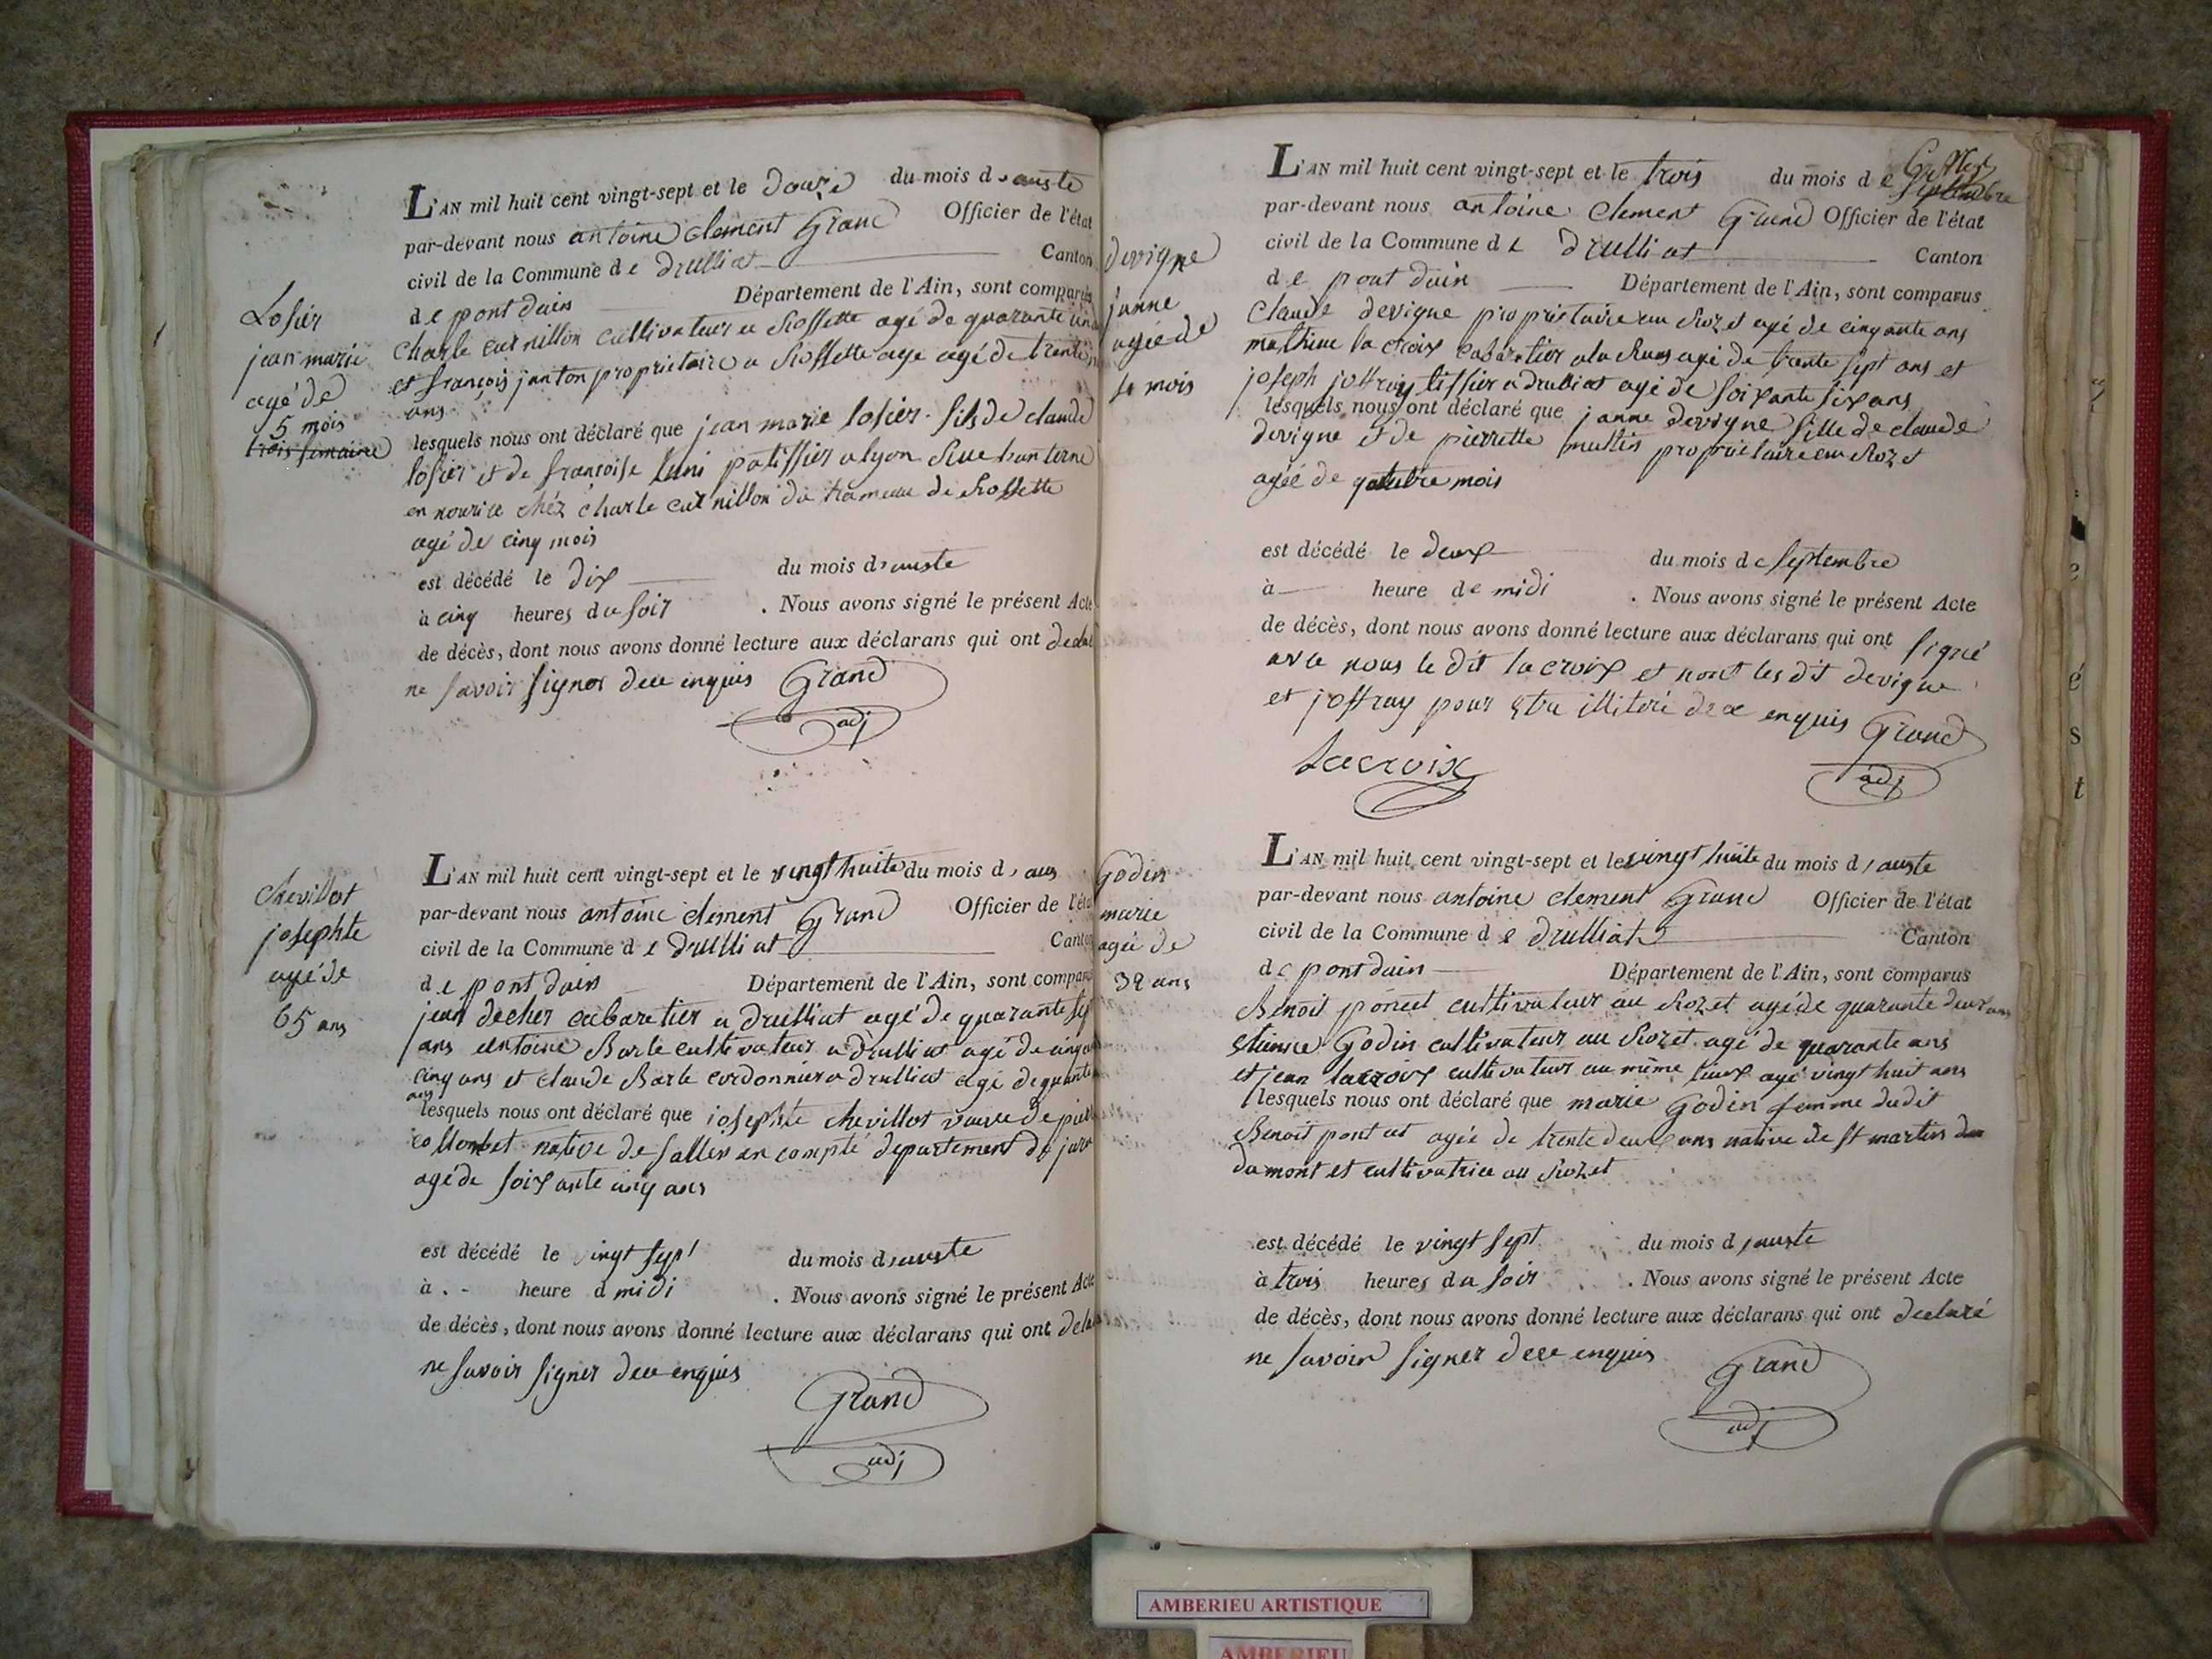 L'AN mil huit cent vingt-sept et le douze du mois d'auste
par-devant nous antoine clement Grand Officier de l'état
civil de la Commune de drulliat Canton
de pont dain Département de l'Ain, sont comparus
charle curnillon cultivateur a Rossette agé de quarante un
et françois janton proprietaire a Rossette age agé de trente
ans
lesquels nous ont déclaré que jean marie losier fils de claude
losier et de françoise patissier a lyon
en nourice chéz charle curnillon du hameau de Rossette
agé de cinq mois
est décédé le dix du mois d'auste
à cinq heures du soir . Nous avons signé le présent Acte
de décès, dont nous avons donné lecture aux déclarans qui ont
ne savoir signer dece enquis Grand
adj
Losier
jean marie
agé de
5 mois
trois semaine
L'AN mil huit cent vingt-sept et le vingt huite du mois d'aus
par-devant nous antoine clement Grand Officier de l'état
civil de la Commune de Drulliat Canton
de pont dain Département de l'Ain, sont comparus
jean decher cabaretier a drulliat agé de quarante
ans antoine Barle cultivateur a drulliat agé de
cinq ans et claude Barle cordonnier a drulliat agé de
ans
lesquels nous ont déclaré que josephte chevillot veuve de
collonbet native de salles en compté departement du jura
agé de soixante cinq ans
est décédé le vingt sept du mois d'auste
à heure d midi . Nous avons signé le présent Acte
de décès, dont nous avons donné lecture aux déclarans qui ont
ne savoir signer dece enquis
Grand
adj
chevillot
josephte
agé de
65 ans
L'AN mil huit cent vingt-sept et le trois du mois de septembre
par-devant nous antoine clement Grand Officier de l'état
civil de la Commune de drulliat Canton
de pont dain Département de l'Ain, sont comparus
claude devigne proprietaire au Rozet agé de cinquante ans
mathieu la croix cabaretier a la agé de trente sept ans et
joseph joffray tissier a drulliat agé de soixante six ans
lesquels nous ont déclaré que janne devigne fille de claude
devigne et de pierrette proprietaire au Rozet
agéé de mois
est décédé le deux du mois de septembre
à heure de midi . Nous avons signé le présent Acte
de décès, dont nous avons donné lecture aux déclarans qui ont signé
avec nous le dit lacroix et nont les dit devigne
et joffray pour être illiteré dece enquis Grand
Lacroix adj
devigne
janne
agée de
mois
L'AN mil huit cent vingt-sept et le vingt huite du mois d'auste
par-devant nous antoine clement Grand Officier de l'état
civil de la Commune de drulliat Canton
de pont dain Département de l'Ain, sont comparus
Benoit poncet cultivateur au Rozet agé de quarante deux ans
etienne Godin cultivateur au Rozet agé de quarante ans
et jean lacroix cultivateur au même lieux agé vingt huit ans
lesquels nous ont déclaré que marie Godin femme dudit
Benoit poncet agée de trente deux ans native de st martin du
du mont et cultivatrice au Rozet
est décédé le vingt sept du mois d'auste
à trois heures du soir . Nous avons signé le présent Acte
de décès, dont nous avons donné lecture aux déclarans qui ont declaré
ne savoir signer dece enquis Grand
adj
Godin
marie
agée de
32 ans
AMBERIEU ARTISTIQUE
AMBERIEU